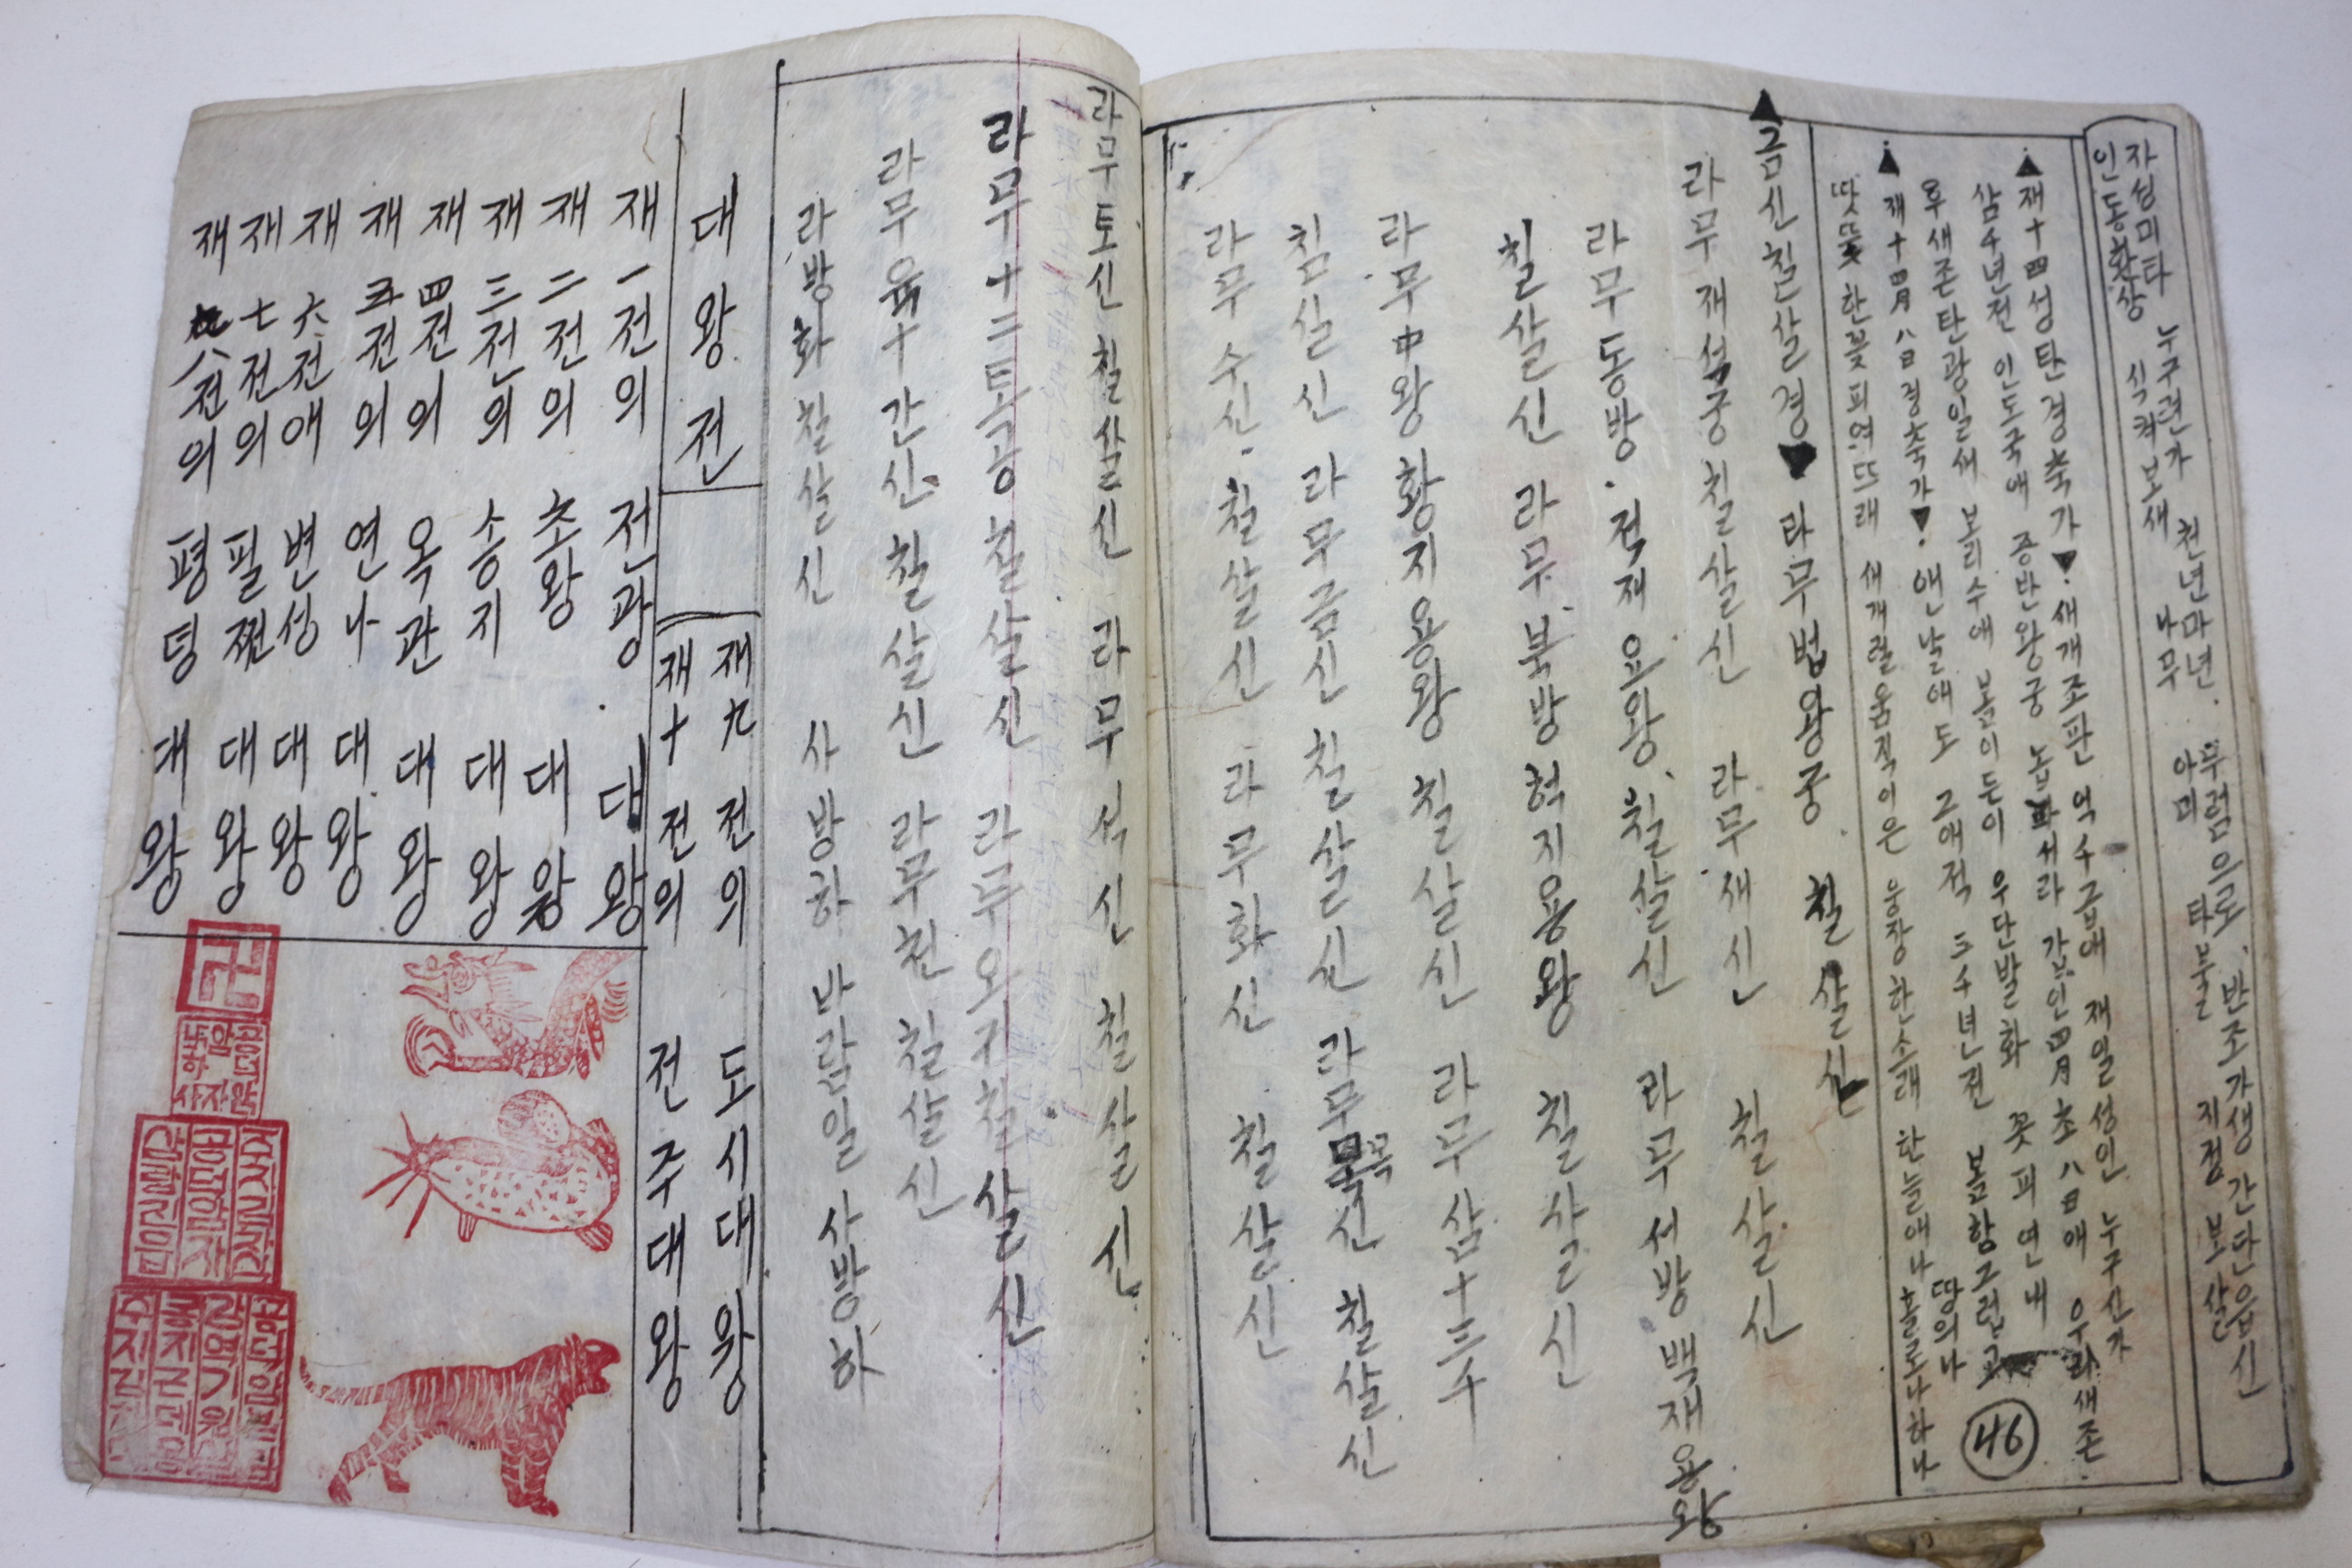 자성미타 누구련가 천년마년 무럼으로 반조가생 간단읍신
인동화상 식켜보새 나무 아미 타불 지정 보살
▲재十四성탄경축가▼ 새개조판 억수급애 재일성인 누구신가
삼千년전 인도국애 증반왕궁 높 서라 갑인四月초八日애 우리새존
우새존탄광일새 보리수애 봄이돈이 우단발화 꽃피연내
▲재十四月八日경축가▼ 애난날애도 그애적 三千년전 봄항그런고
땃뜻한봇피여뜨래 새개럴움직이은 웅장한소래 한늘애나 땅의나 홀로나하나
46
▲금신칠살경▼ 라무법왕궁 칠살신
라무재석궁칠살신 라무새신 칠살신
라무동방 적재요왕 칠살신 라무서방백재용왕
칠살신 라무북방혁지용왕 칠살신
라무中왕황지용왕 칠살신 라무삼十三수
침살신 라무금신칠살신 라무목신 칠살신
라무수신 칠살신 라무화신 칠살신
라무토신칠살신 라무석신 칠살신
라무十二토공칠살신 라무오귀칠살신
라무육十간신칠살신 라무천칠살신
라방화칠살신 사방하 바람일 사방하
대왕전
재九전의 도시대왕
재十전의 전주대왕
재一전의 전광대왕
재二전의 초왕대왕
재三전의 송지대왕
재四전의 옥관대왕
재五전의 연나대왕
재六전애 변성대왕
재七전의 필쩐대왕
재八전의 평텅대왕
卍